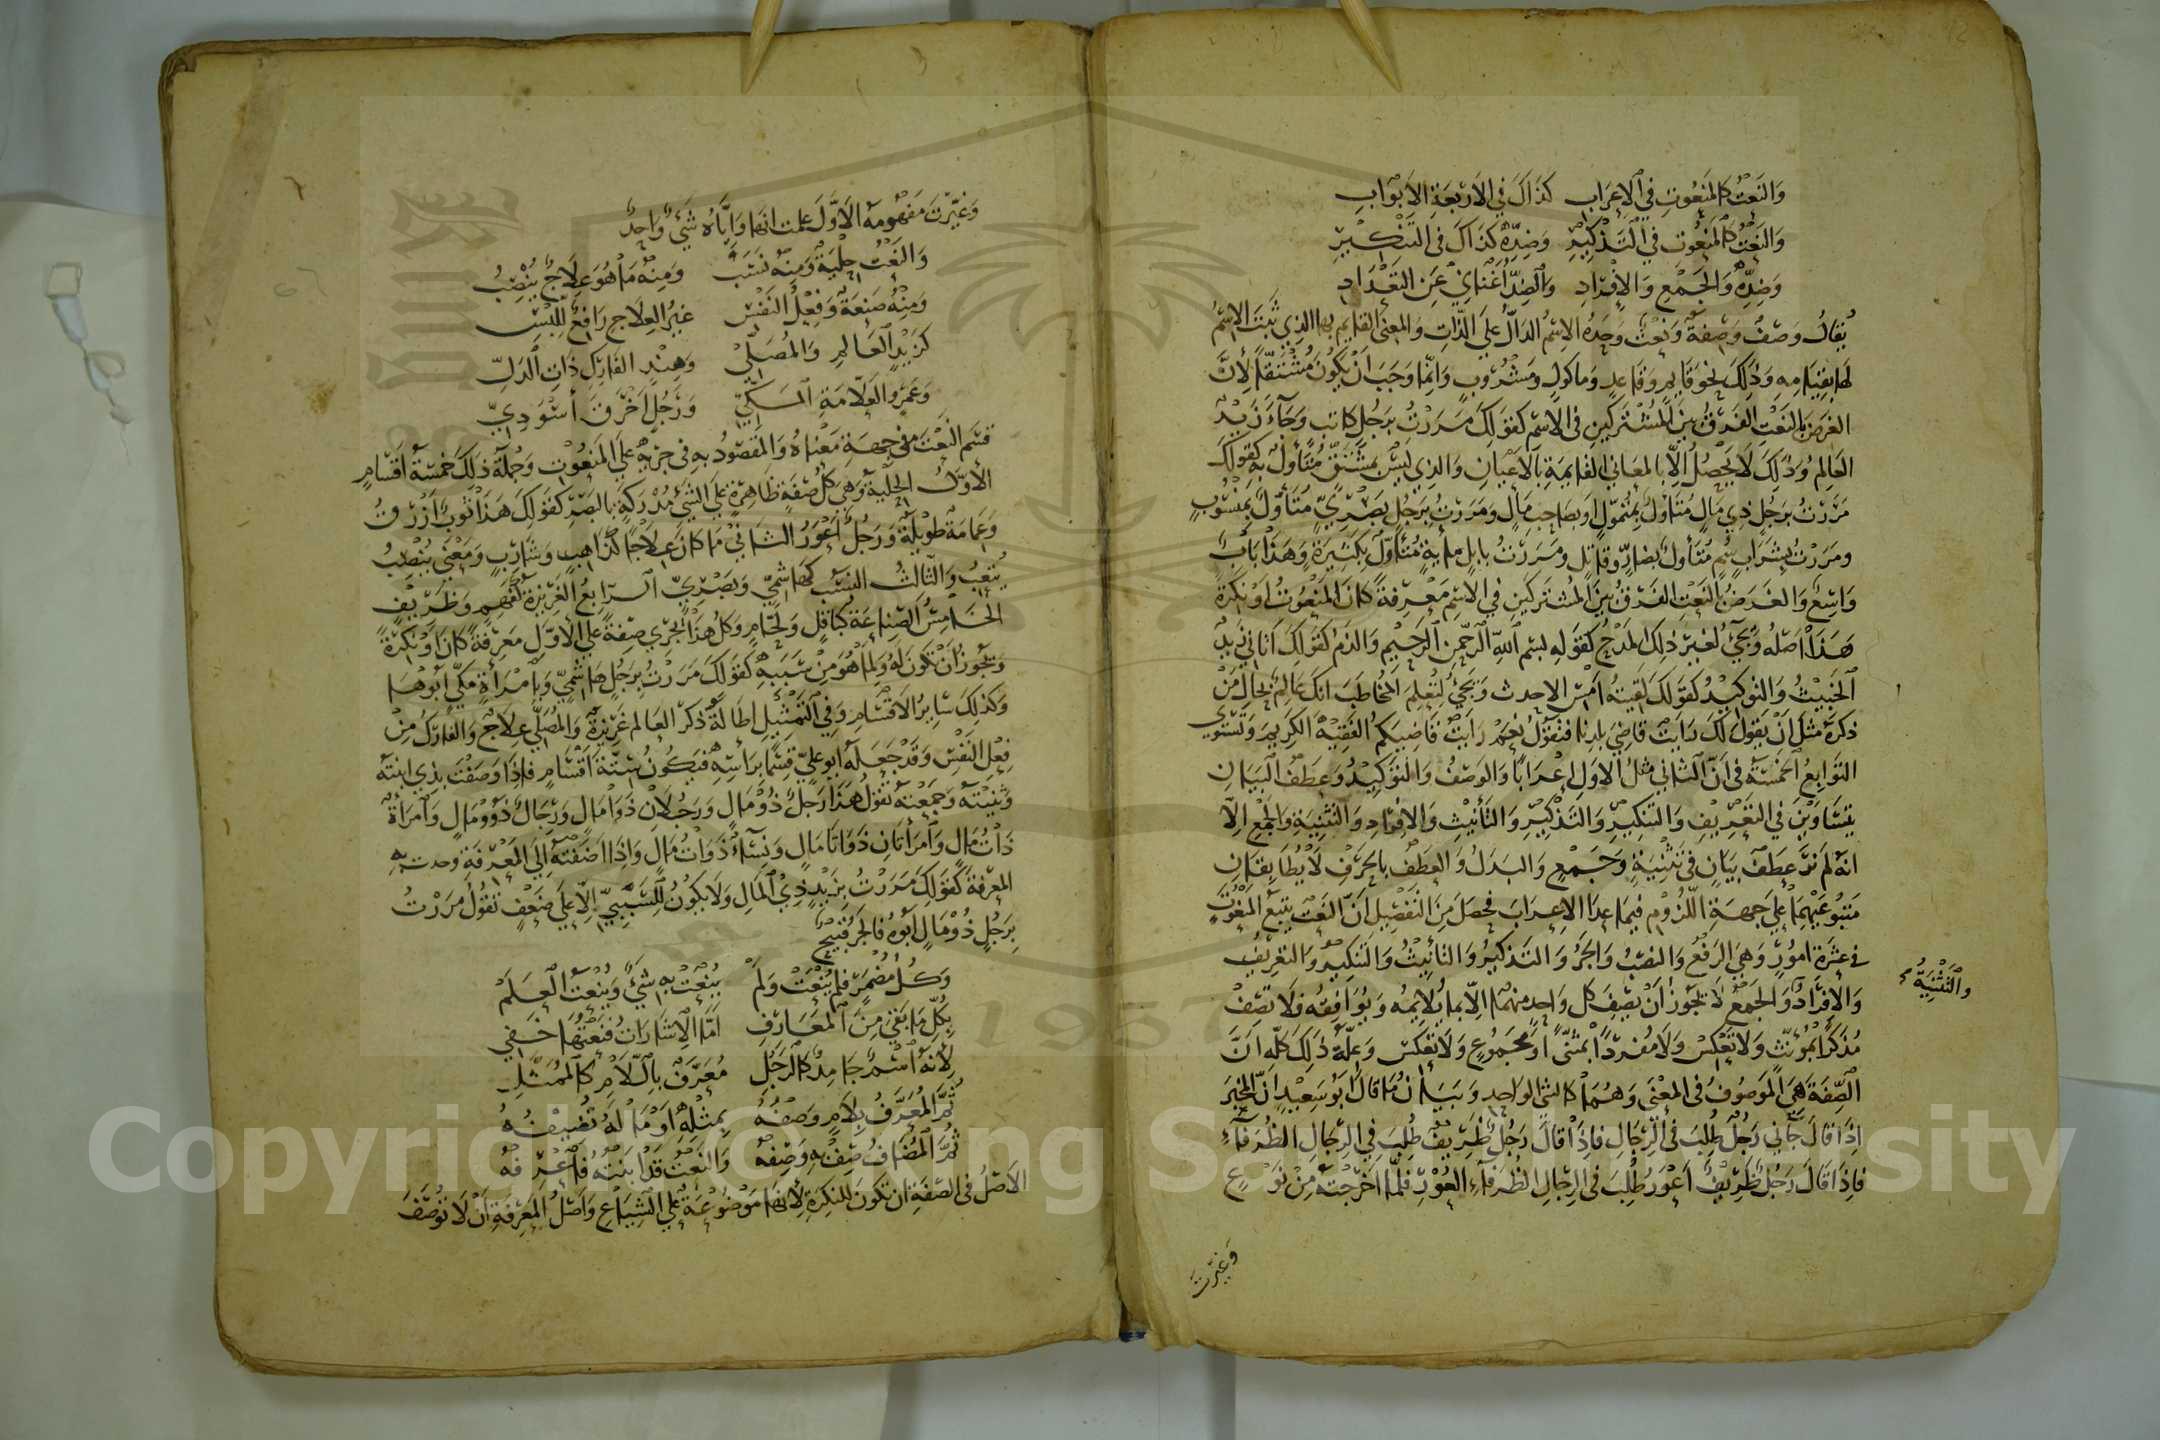 والنعت كالمنعوت في الإعراب كذاك في الأربعة الأبواب
والنعت كالمنعوت في التذكير وضده كذاك في التنكير
وضده والجمع والإفراد والضد أغناني عن التعداد
يقال وصف وصفة ونعت وحده الاسم الدال على الذات والمعنى القايم بها الذي ثبت الاسم
لها بقيامه وذلك نحو قايم وقاعد وماكول ومشروب وانما وجب أن يكون مشتقا لأن
الغرض بالنعت الفرق بين المشتركين في الاسم كقولك مررت برجل كاتب وجآء زيد
العالم وذلك لا يحصل إلا بالمعاني القايمة بالأعيان والذي ليس بمشتق متأول به كقولك
مررت برجل ذي مال متأول بمتمول وبصاحب مال ومررت برجل بصري متأول بمنسوب
ومررت بشراب سم متأول بضار وقاتل ومررت بابل ماية متأول بكثيرة وهذا باب
واسع والغرض بالنعت الفرق بين المشتركين في الاسم معرفة كان المنعوت او نكرة
هذا أصله ويجئ لغير ذلك المدح كقوله بسم الله الرحمن الرحيم والذم كقولك أتاني زيد
الخبيث والتوكيد كقولك لقيته امس الاحدث ويجئ لتعلم المخاطب انك عالم بحال من
ذكره مثل أن يقول لك رايت قاضي بلدنا فتقول نعم رايت قاضيكم الفقيه الكريم وتستوي
التوابع الخمسة في أن الثاني مثل الأول إعرابا والوصف والتوكيد وعطف البيان
يتساوين في التعريف والتنكير والتذكير والتأنيث والافراد والتثنية والجمع إلا
انه لم نر عطف بيان في تثنية وجمع والبدل والعطف بالحرف لا يطابقان
متبوعيهما على جهة اللزوم فيما عدا الاعراب فحصل من التفصيل أن النعت يتبع المنعوت
في عشرة امور وهي الرفع والنصب والجر والتذكير والتانيث والتنكير والتعريف
والتثنية
والافراد والجمع لا يجوز أن يصف كل واحد منهما إلا بما يلايمه ويوافقه فلا تصف
مذكرا بمؤنث ولا تعكس ولا مفردا بمثنى أو مجموع ولا تعكس وعلة ذلك كله أن
الصفة هي الموصوف في المعنى وهما كالشئ الواحد وبيان ما قال أبو سعيد إن المخبر
إذا قال جاني رجل طلب في الرجال فإذا قال رجل ظريف طلب في الرجال الظرفآء
فإذا قال رجل ظريف أعور طلب في الرجال الظرفآء العور فلما اخرجته من نوع
وغيرت
وغيرت مفهومه الأول علمت انها وإياه شئ واحد
والنعت حلية ومنه نسب ومنه ما هو علاج ينصب
ومنه صنعة وفعل النفس غير العلاج رافع للبس
كزيد العالم والمصلي وهند الغازل ذات الدل
وعمرو العلامة المكي ورجل أخرق أسودي
قسم النعت من جهة معناه والمقصود به في جريه على المنعوت وجملة ذلك خمسة أقسام
الأول الحلية وهي كل صفة ظاهرة على الشئ مدركة بالبصر كقولك هذا ثوب أزرق
وعمامة طويلة ورجل أعور الثاني ما كان علاجا كذاهب وشارب ومعنى ينصب
يتعب والثالث النسب كهاشمي وبصري الرابع الغريزة كفهم وظريف
الخامس الصناعة كباقل ولحام وكل هذا يجري صفة على الأول معرفة كان أو نكرة
ويجوز أن تكون له ولما هو من سببه كقولك مررت برجل هاشمي وبامرأة مكي أبوها
وكذلك ساير الاقسام وفي التمثيل إطالة ذكر العالم غريزة والمصلي علاج والغازل من
فعل النفس وقد جعله أبو علي قسما برأسه فيكون ستة أقسام فإذا وصفت بذي اثنته
وثنيته وجمعته تقول هذا رجل ذو مال ورجلان ذوا مال ورجال ذوو مال وامرأة
ذات مال وامرأتان ذواتا مال ونسآء ذوات مال وإذا اضفته إلى المعرفة وحدت به
المعرفة كقولك مررت بزيد ذي المال ولا يكون للسببي إلا على ضعف تقول مررت
برجل ذو مال أبوه فالجر قبيح
وكل مضمر فلم ينعت ولم ينعت به شئ وينعت العلم
بكل ما بقي من المعارف أما الإشارات فنعتها خفي
لأنه اسم جامد كالرجل معرف باللام كالممثل
ثم المعرف بلام وصفه بمثله أو ما له تضيفه
ثم المضاف صفه وصفه والنعت قد أبنته فاعرفه
الأصل في الصفة ان تكون للنكرة لأنها موضوعة على الشياع وأصل المعرفة أن لا توصف